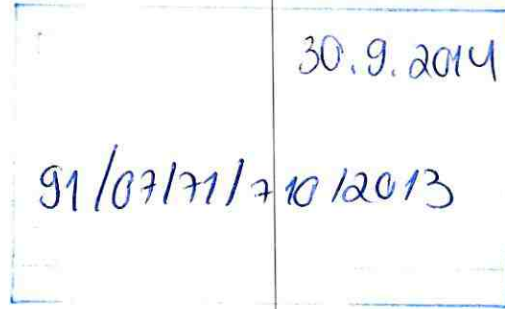 30.9.2014
91/07/71/710/2013